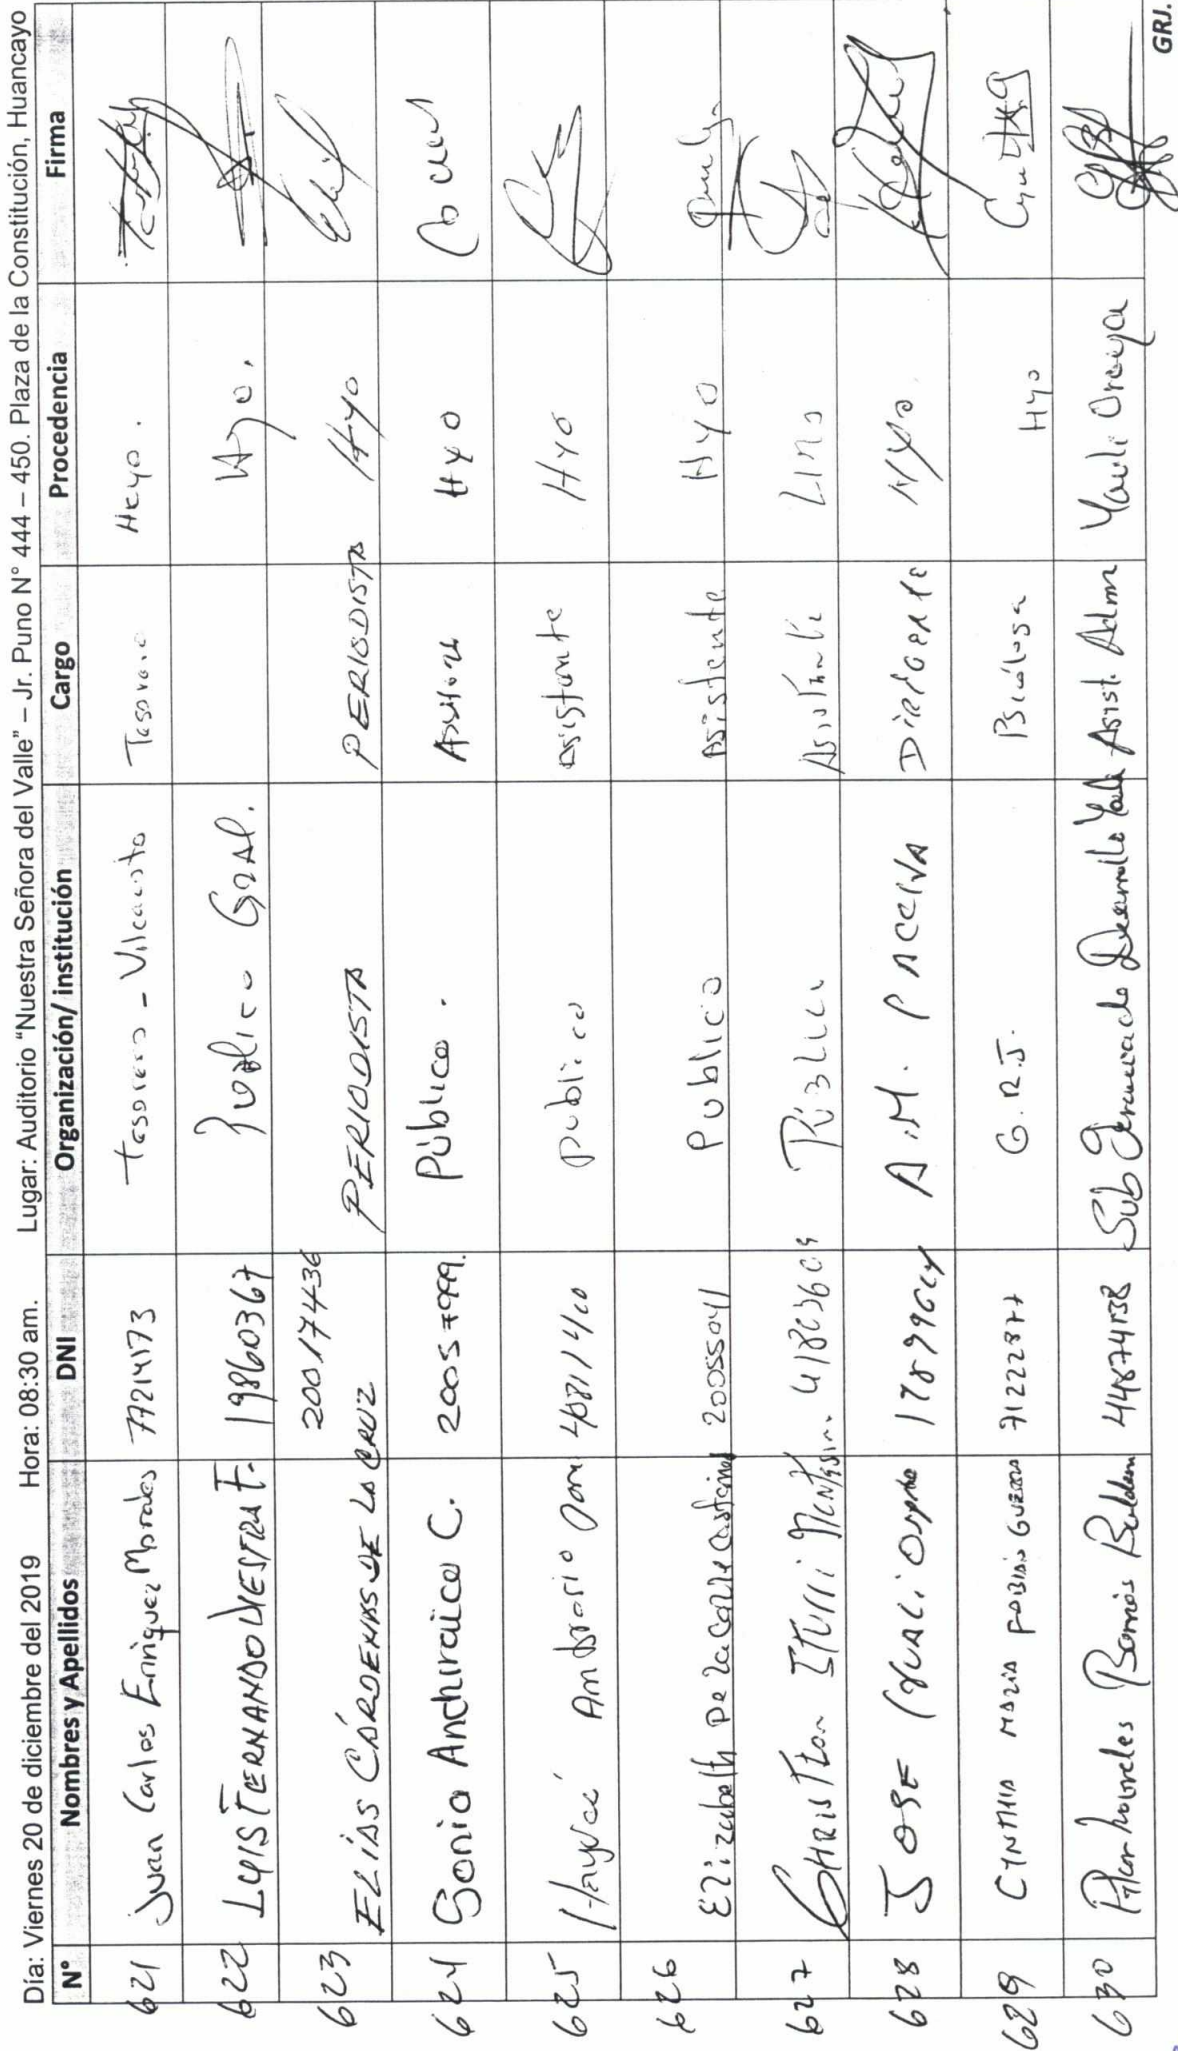 Día: Viernes 20 de diciembre del 2019 Hora: 08:30 am. Lugar: Auditorio "Nuestra Señora del Valle" – Jr. Puno N° 444 – 450. Plaza de la Constitución, Huancayo
N° Nombres y Apellidos DNI Organización/ institución Cargo Procedencia Firma
621 Juan Carlos Enriquez Morales 77214173 Tesorero - Vilcacoto Tesorero Hcyo.
622 LUIS FERNANDO F. 19860367 Público GRAL. Hyo.
623 ELÍAS CÁRDENAS DE LA CRUZ 20017436 PERIODISTA PERIODISTA Hyo
624 Sonia Anchiraico C. 20057999. Público. Hyo
625 Haydeé Ambrosio 40811410 publico asistente Hyo
626 Elizabeth De la Calle 20055041 Publico Asistente Hyo
627 CHRISTIAN Iturri Público Asistente LIMA
628 JOSE A.M. PACCHA DIRIGENTE Hyo
629 CYNTHIA MARIA FABIAN GUZMAN 71222877 G.R.J. Psicóloga Hyo
630 Pilar Barrios 44874138 Sub Gerencia de Desarrollo Yauli Asist. Adm Yauli Oroya
GRJ.